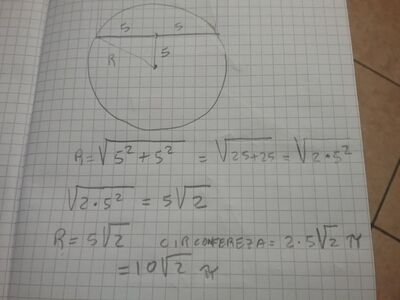 5 5
5
R
R = √5² + 5² = √25+25 = √2•5²
√2•5² = 5√2
R = 5√2 CIRCONFEREZA = 2•5√2 π
= 10√2 π